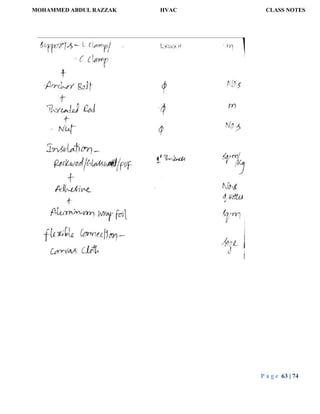 MOHAMMED ABDUL RAZZAK HVAC CLASS NOTES
Supports - L Clamp/ m
- C Clamp
+
Anchor Bolt φ No.s
+
Threaded Rod φ m
+
- Nut φ No.s
Insulation -
Rockwool/Glasswool/PUF Thickness sqm/kg
+
Adhesive
+
Aluminium wrap foil sqm
flexible Connection -
Canvas Cloth
P a g e 63 | 74